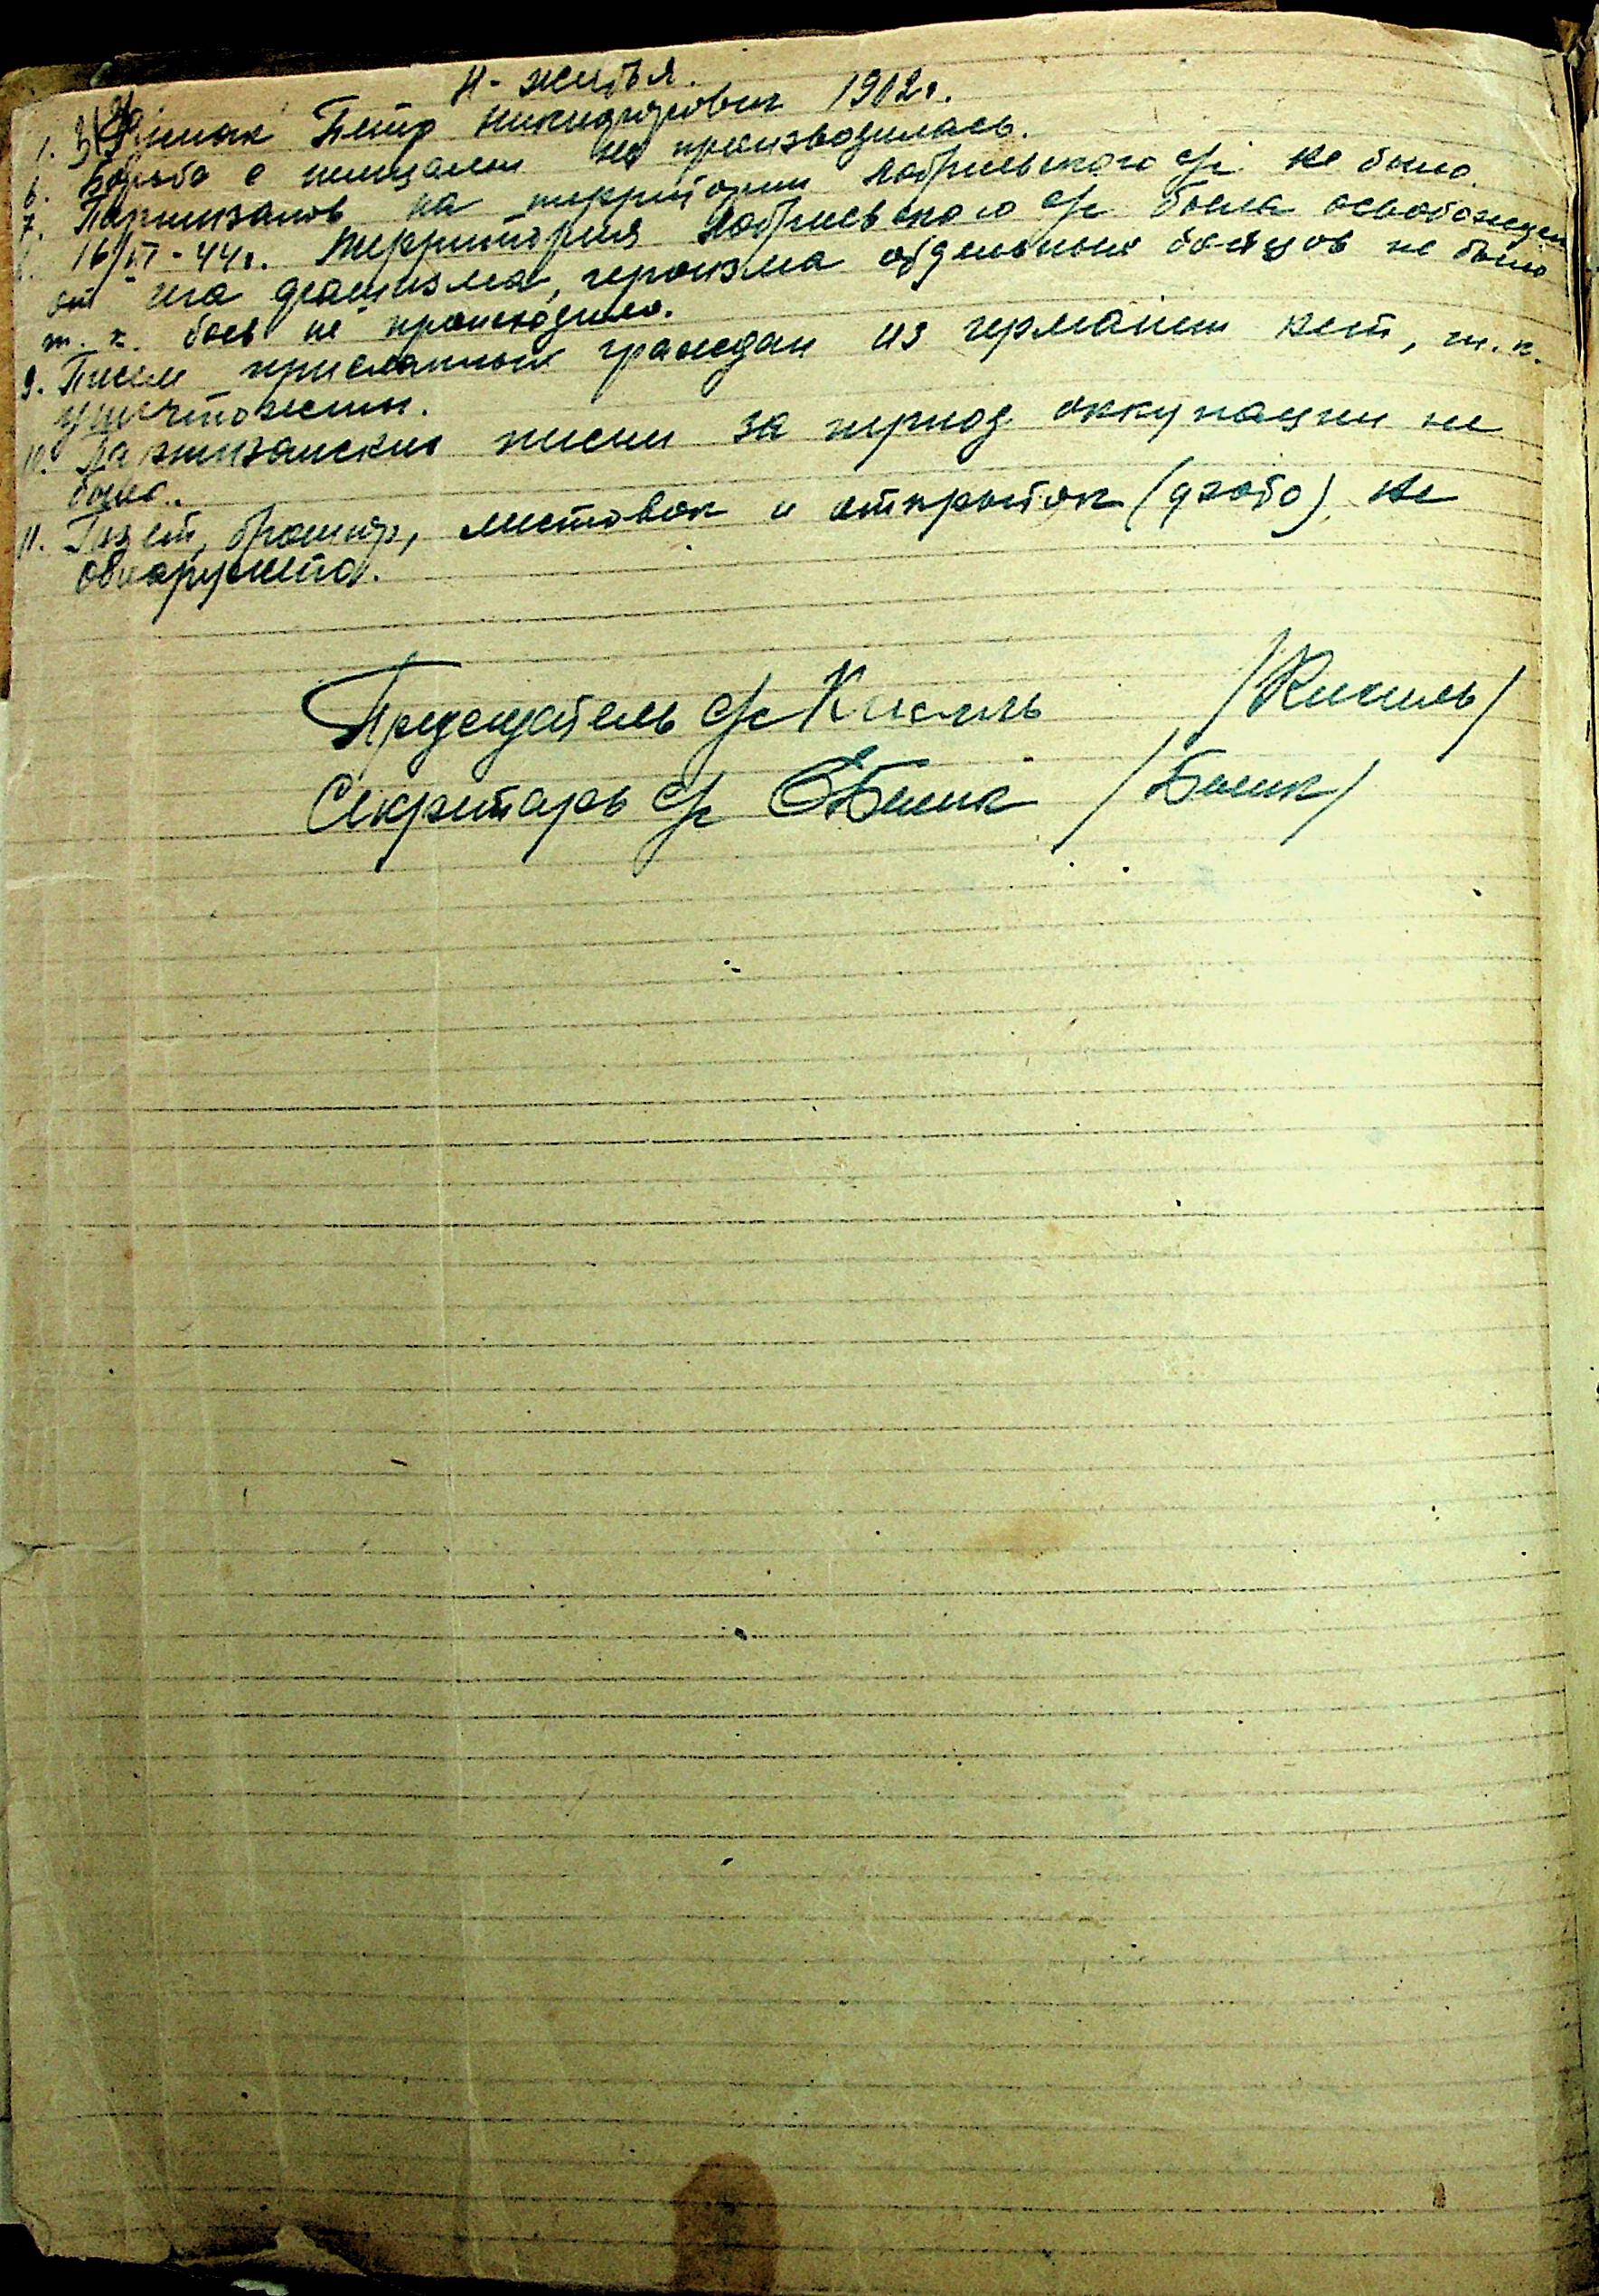 Н-житья.
1. Петр Никифорович 1902г.
6. Борьба с немцами не производилась.
7. Партизанов на территории с/с не было.
16/VII-44г. Территория с/с была освобожден
от ига фашизма, героизма отдельных бойцов не было
т. к. боев не происходило.
9. Писем присланных граждан из германии нет, т. к.
уничтожены.
10. Партизанских писем за период оккупации не
было.
11. Газет, брошюр, листовок и открыток (фото) не
обнаружено.
Председатель с/с Кисель /Кисель/
Секретарь с/с Белик /Белик/